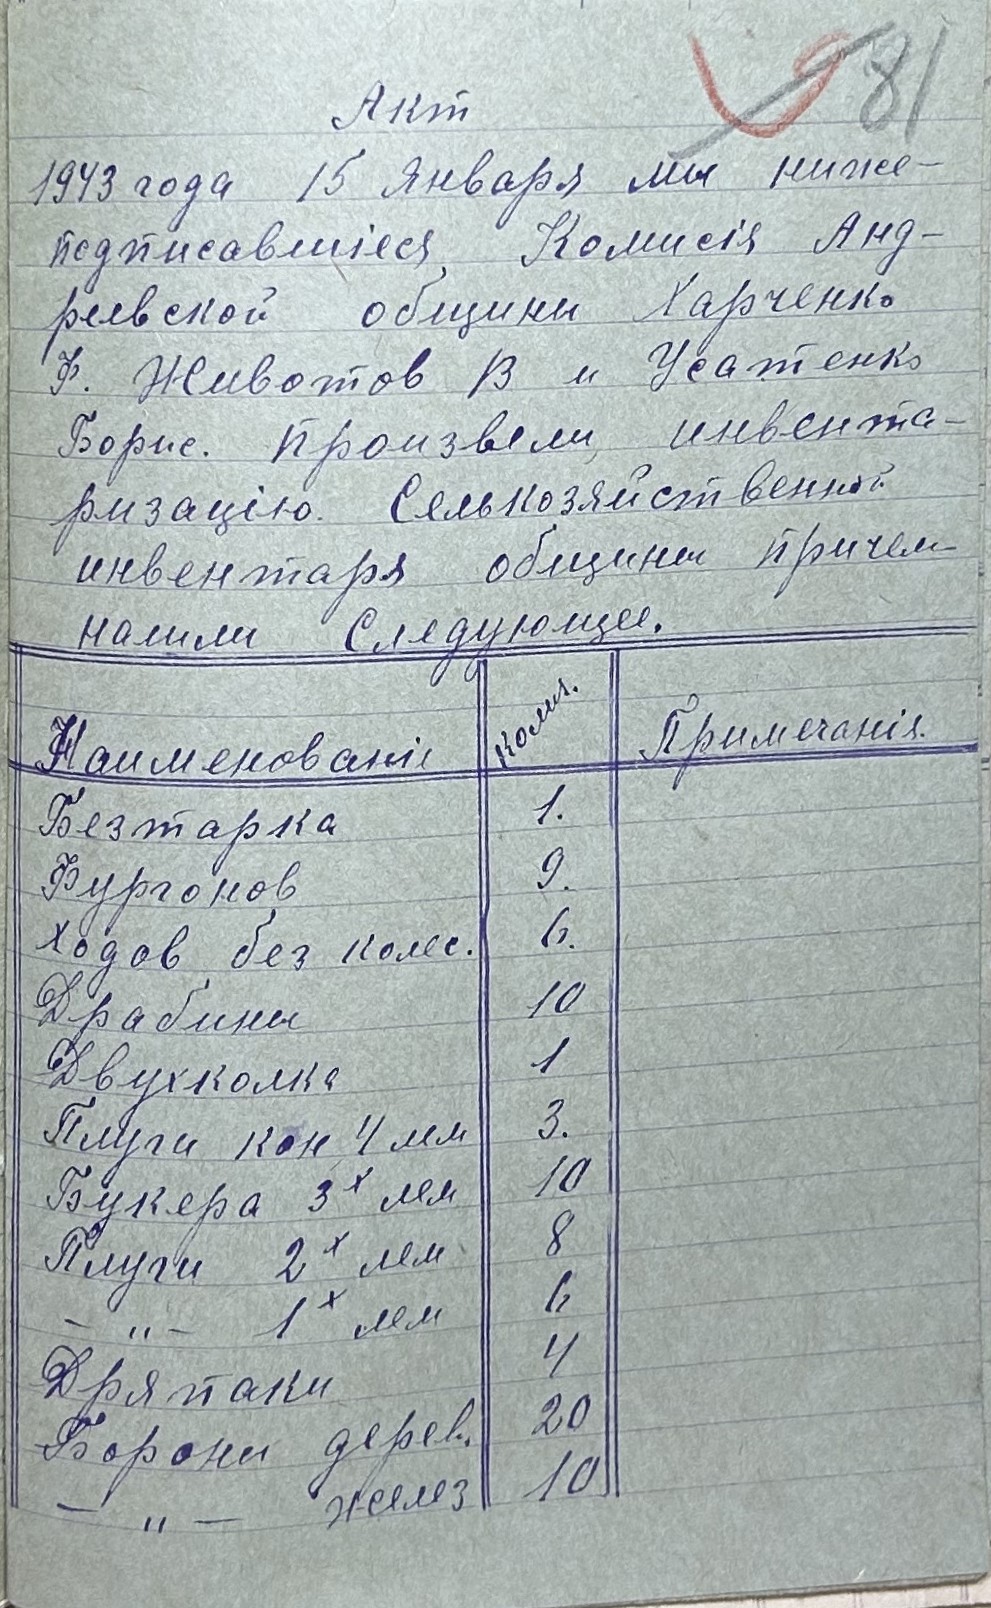 81
Акт
1943 года 15 Января мы ниже-
подписавшіеся Комисія Анд-
реевской общины Харченко
Ф. Животов В и Усатенко
Борис. произвели инвента-
ризацію. Сельхозяйственной
инвентаря общины причем
нашли Следующее.
Наименованіе Колич. Примечанія.
Безтарка 1.
Бургонов 9.
Ходов без колес. 6.
Драбины 10
Двухколка 1
Плуги кон 4 лем 3.
Букера 3х лем 10
Плуги 2х лем 8
- „ - 1х лем 6
Дряпаки 4
Борони дерев. 20
- „ - желез 10